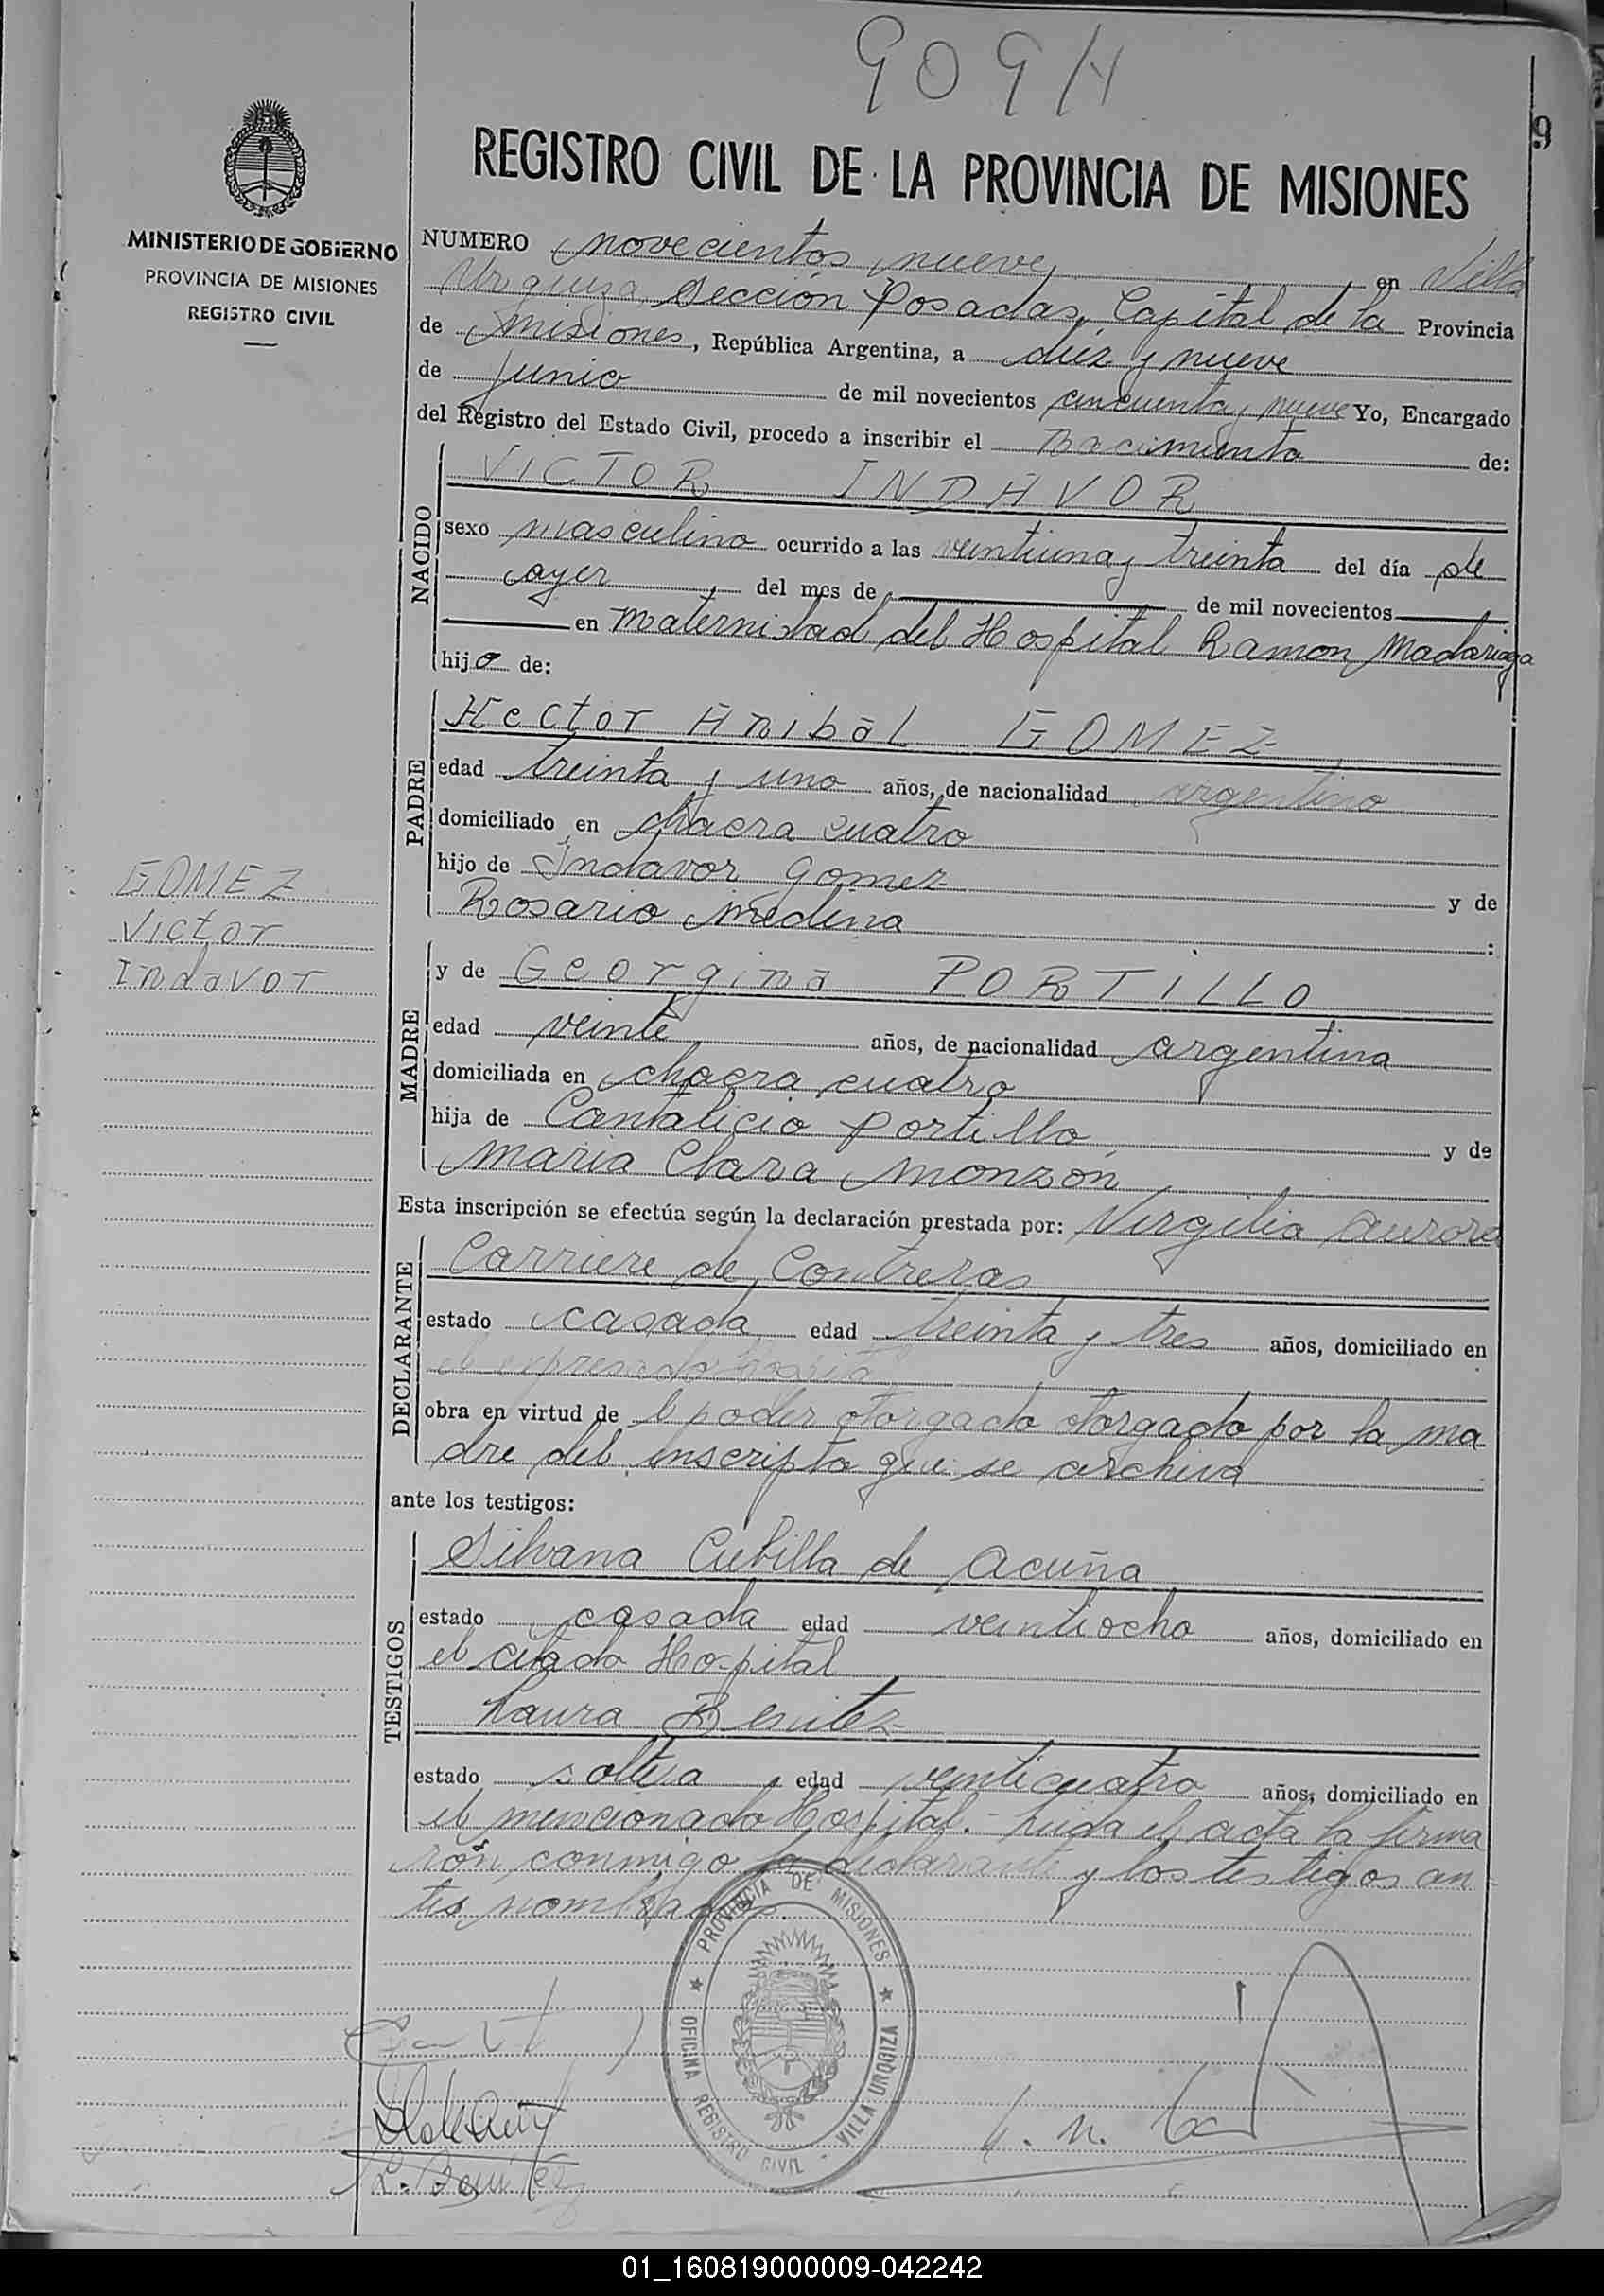 909 H
9
REGISTRO CIVIL DE LA PROVINCIA DE MISIONES
MINISTERIO DE GOBIERNO
PROVINCIA DE MISIONES
REGISTRO CIVIL
NUMERO novecientos nueve en Villa
Urquiza, Sección Posadas, Capital de la Provincia
de Misiones, República Argentina, a diez y nueve
de Junio de mil novecientos cincuenta y nueve Yo, Encargado
del Registro del Estado Civil, procedo a inscribir el nacimiento de:
NACIDO
VICTOR INDAVOR
sexo masculino ocurrido a las veintiuna y treinta del día de
ayer del mes de de mil novecientos
en maternidad del Hospital Ramon Madariaga
hijo de:
PADRE
Hector Anibal GOMEZ
edad treinta y uno años, de nacionalidad argentino
domiciliado en chacra cuatro
hijo de Indavor Gomez y de
Rosario Medina :
GOMEZ
Victor
Indavor
MADRE
y de Georgina PORTILLO
edad veinte años, de nacionalidad argentina
domiciliada en chacra cuatro
hija de Cantalicio Portillo y de
Maria Clara Monzón
Esta inscripción se efectúa según la declaración prestada por: Virgilia Aurora
DECLARANTE
Carriere de Contreras
estado casada edad treinta y tres años, domiciliado en
el expresado Hospital
obra en virtud de l poder otorgado otorgado por la ma
dre del inscripto que se archiva
ante los testigos:
TESTIGOS
Silvana Cubilla de Acuña
estado casada edad veintiocho años, domiciliado en
el citado Hospital
Laura Benitez
estado soltera edad veinticuatro años, domiciliado en
el mencionado Hospital.- Leida el acta la firma
rón conmigo la declarante y los testigos an-
tes nombrados.
PROVINCIA DE MISIONES
OFICINA REGISTRO CIVIL - VILLA URQUIZA
L. Benitez
01_160819000009-042242